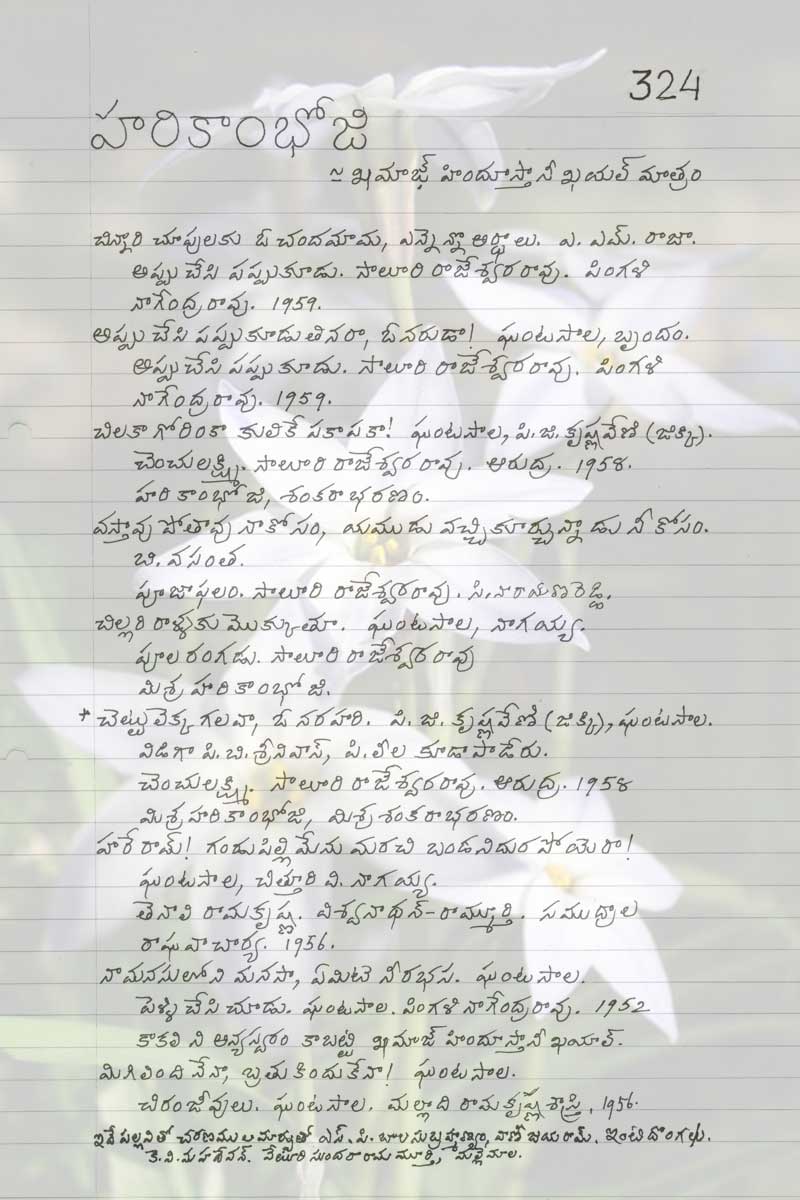 324
హరికాంభోజి
~ ఖమాజ్ హిందూస్తానీ ఖయల్ మాత్రం
చిన్నారి చూపులకు ఓ చందమామ, ఎన్నెన్నొ అర్థాలు. ఎ. ఎమ్. రాజా.
అప్పు చేసి పప్పుకూడు. సాలూరి రాజేశ్వరరావు. పింగళి
నాగేంద్రరావు. 1959.
అప్పు చేసి పప్పుకూడు తినరా, ఓ నరుడా! ఘంటసాల, బృందం.
అప్పు చేసి పప్పు కూడు. సాలూరి రాజేశ్వరరావు. పింగళి
నాగేంద్రరావు. 1959.
చిలకా గోరింకా కులికే పకాపకా! ఘంటసాల, పి.జి.కృష్ణవేణి (జిక్కి).
చెంచులక్ష్మి. సాలూరి రాజేశ్వరరావు. ఆరుద్ర. 1958.
హరికాంభోజి, శంకరాభరణం.
వస్తావు పోతావు నాకోసం, యముడు వచ్చి కూర్చున్నాడు నీ కోసం.
బి.వసంత.
పూజాఫలం. సాలూరి రాజేశ్వరరావు. సి.నారాయణరెడ్డి.
చిల్లరి రాళ్ళకు మొక్కుతూ. ఘంటసాల, నాగయ్య.
పూలరంగడు. సాలూరి రాజేశ్వరరావు
మిశ్ర హరికాంభోజి.
+ చెట్టులెక్క గలవా, ఓ నరహరి. పి. జి. కృష్ణవేణి (జిక్కి), ఘంటసాల.
విడిగా పి.బి.శ్రీనివాస్, పి.లీల కూడా పాడేరు.
చెంచులక్ష్మి. సాలూరి రాజేశ్వరరావు. ఆరుద్ర. 1958
మిశ్రహరికాంభోజి, మిశ్రశంకరాభరణం.
హరేరామ్! గండుపిల్లి మేను మరచి బండనిదుర పోయెరా!
ఘంటసాల, చిత్తూరి వి. నాగయ్య.
తెనాలి రామకృష్ణ. విశ్వనాథన్-రామ్మూర్తి. సముద్రాల
రాఘవాచార్య. 1956.
నా మనసులోని మనసా, ఏమిటె నీ రభస. ఘంటసాల.
పెళ్ళి చేసి చూడు. ఘంటసాల. పింగళి నాగేంద్రరావు. 1952
కాకలి ని అన్యస్వరం కాబట్టి ఖమాజ్ హిందూస్తానీ ఖయాల్.
మిగిలింది నేనా, బ్రతుకిందుకేనా! ఘంటసాల.
చిరంజీవులు. ఘంటసాల. మల్లాది రామకృష్ణశాస్త్రి, 1956.
ఇదే పల్లవితో చరణముల మార్పుతో ఎస్. పి. బాలసుబ్రహ్మణ్యం, వాణీ జయరామ్. ఇంటిదొంగలు.
కె.వి.మహదేవన్. వేటూరి సుందరరామమూర్తి, మల్లెమాల.